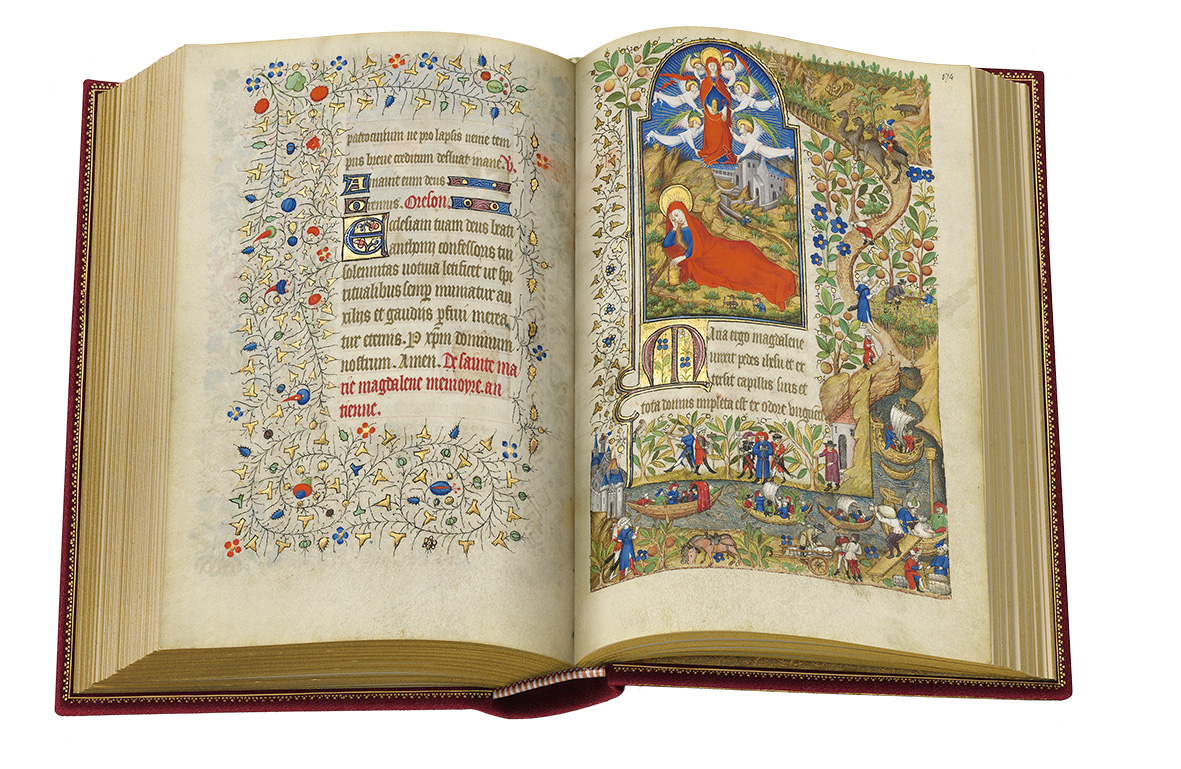 patrocinium ne pro lapsis veine tem
pus breve creditum defluat mane. V.
Amavit eum deus
Oremus. Oreson.
Ecclesiam tuam deus beati
anthonij confessoris tui
solennitas votiva letificet ut spi
ritualibus semp muniatur au
xilijs et gaudijs pfrui merea
tur eternis. P xpm dominum
nostrum. Amen. De sainte ma
rie magdalene memoyre. an
tienne.
174
Maria ergo magdalene
unxit pedes ihesu et ex
tersit capillis suis et
tota domus impleta est ex odore unguen